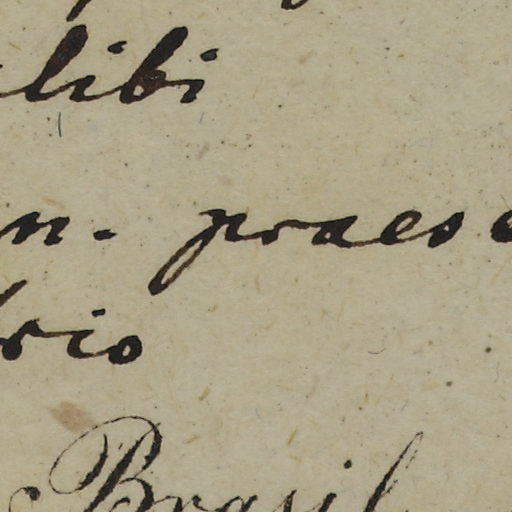 libi
n. praese
rio
Brasil